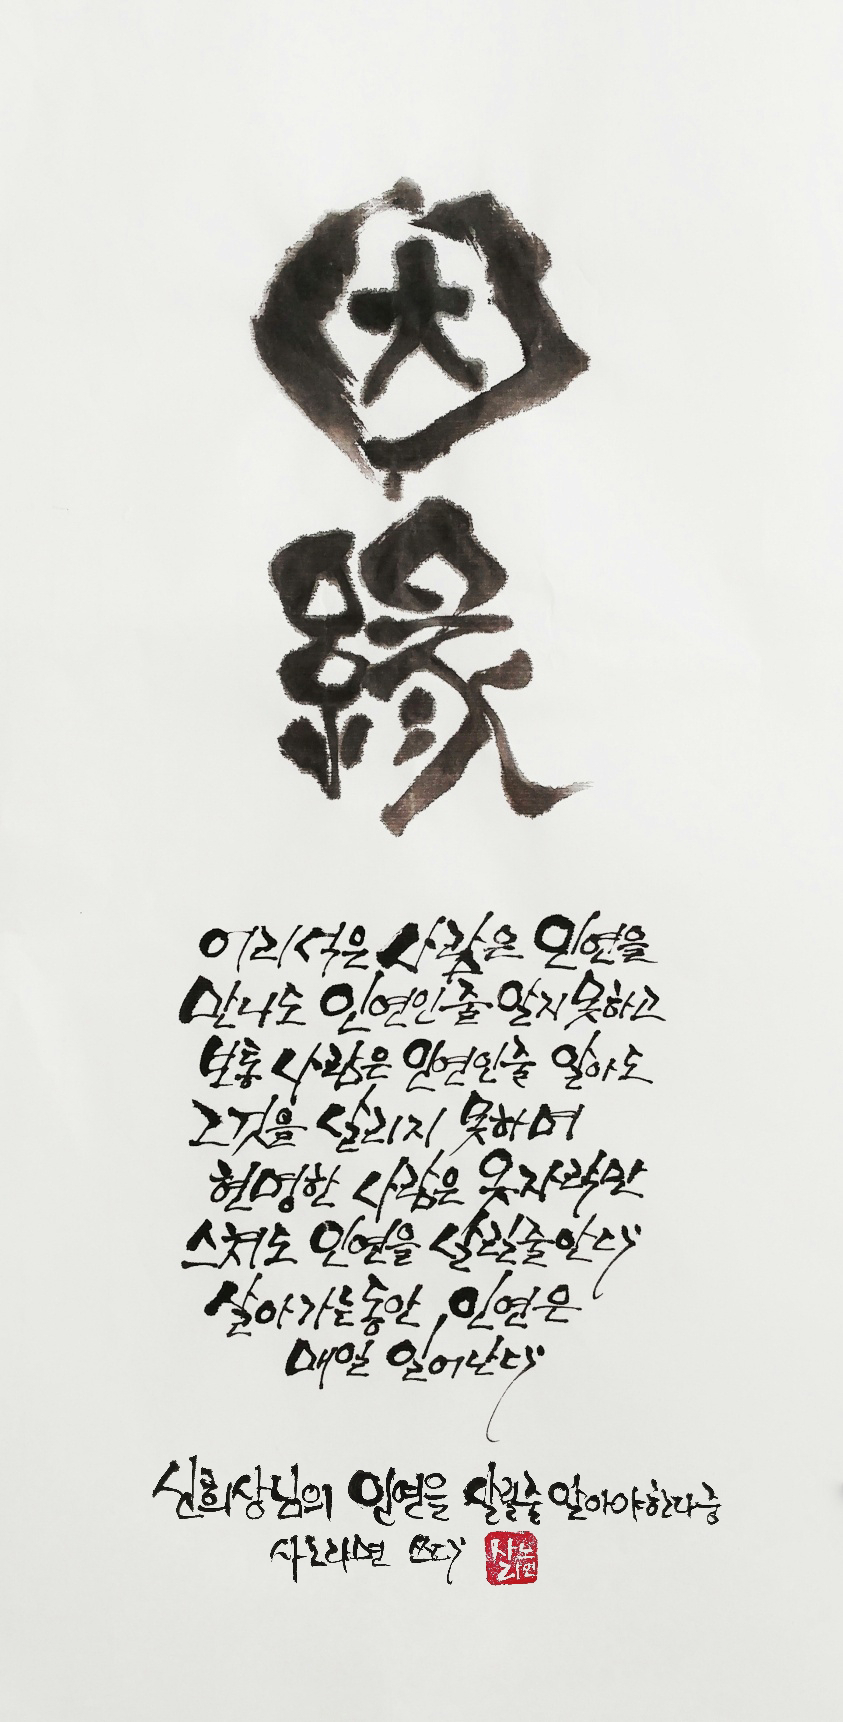 因
緣
어리석은 사람은 인연을
만나도 인연인줄 알지못하고
보통사람은 인연인줄 알아도
그것을 살리지 못하며
현명한 사람은 옷자락만
스쳐도 인연을 살릴줄안다
살아가는동안 인연은
매일 일어난다
신희상님의 인연을 살릴줄 알아야한다중
사노라면 쓰다
사노라면